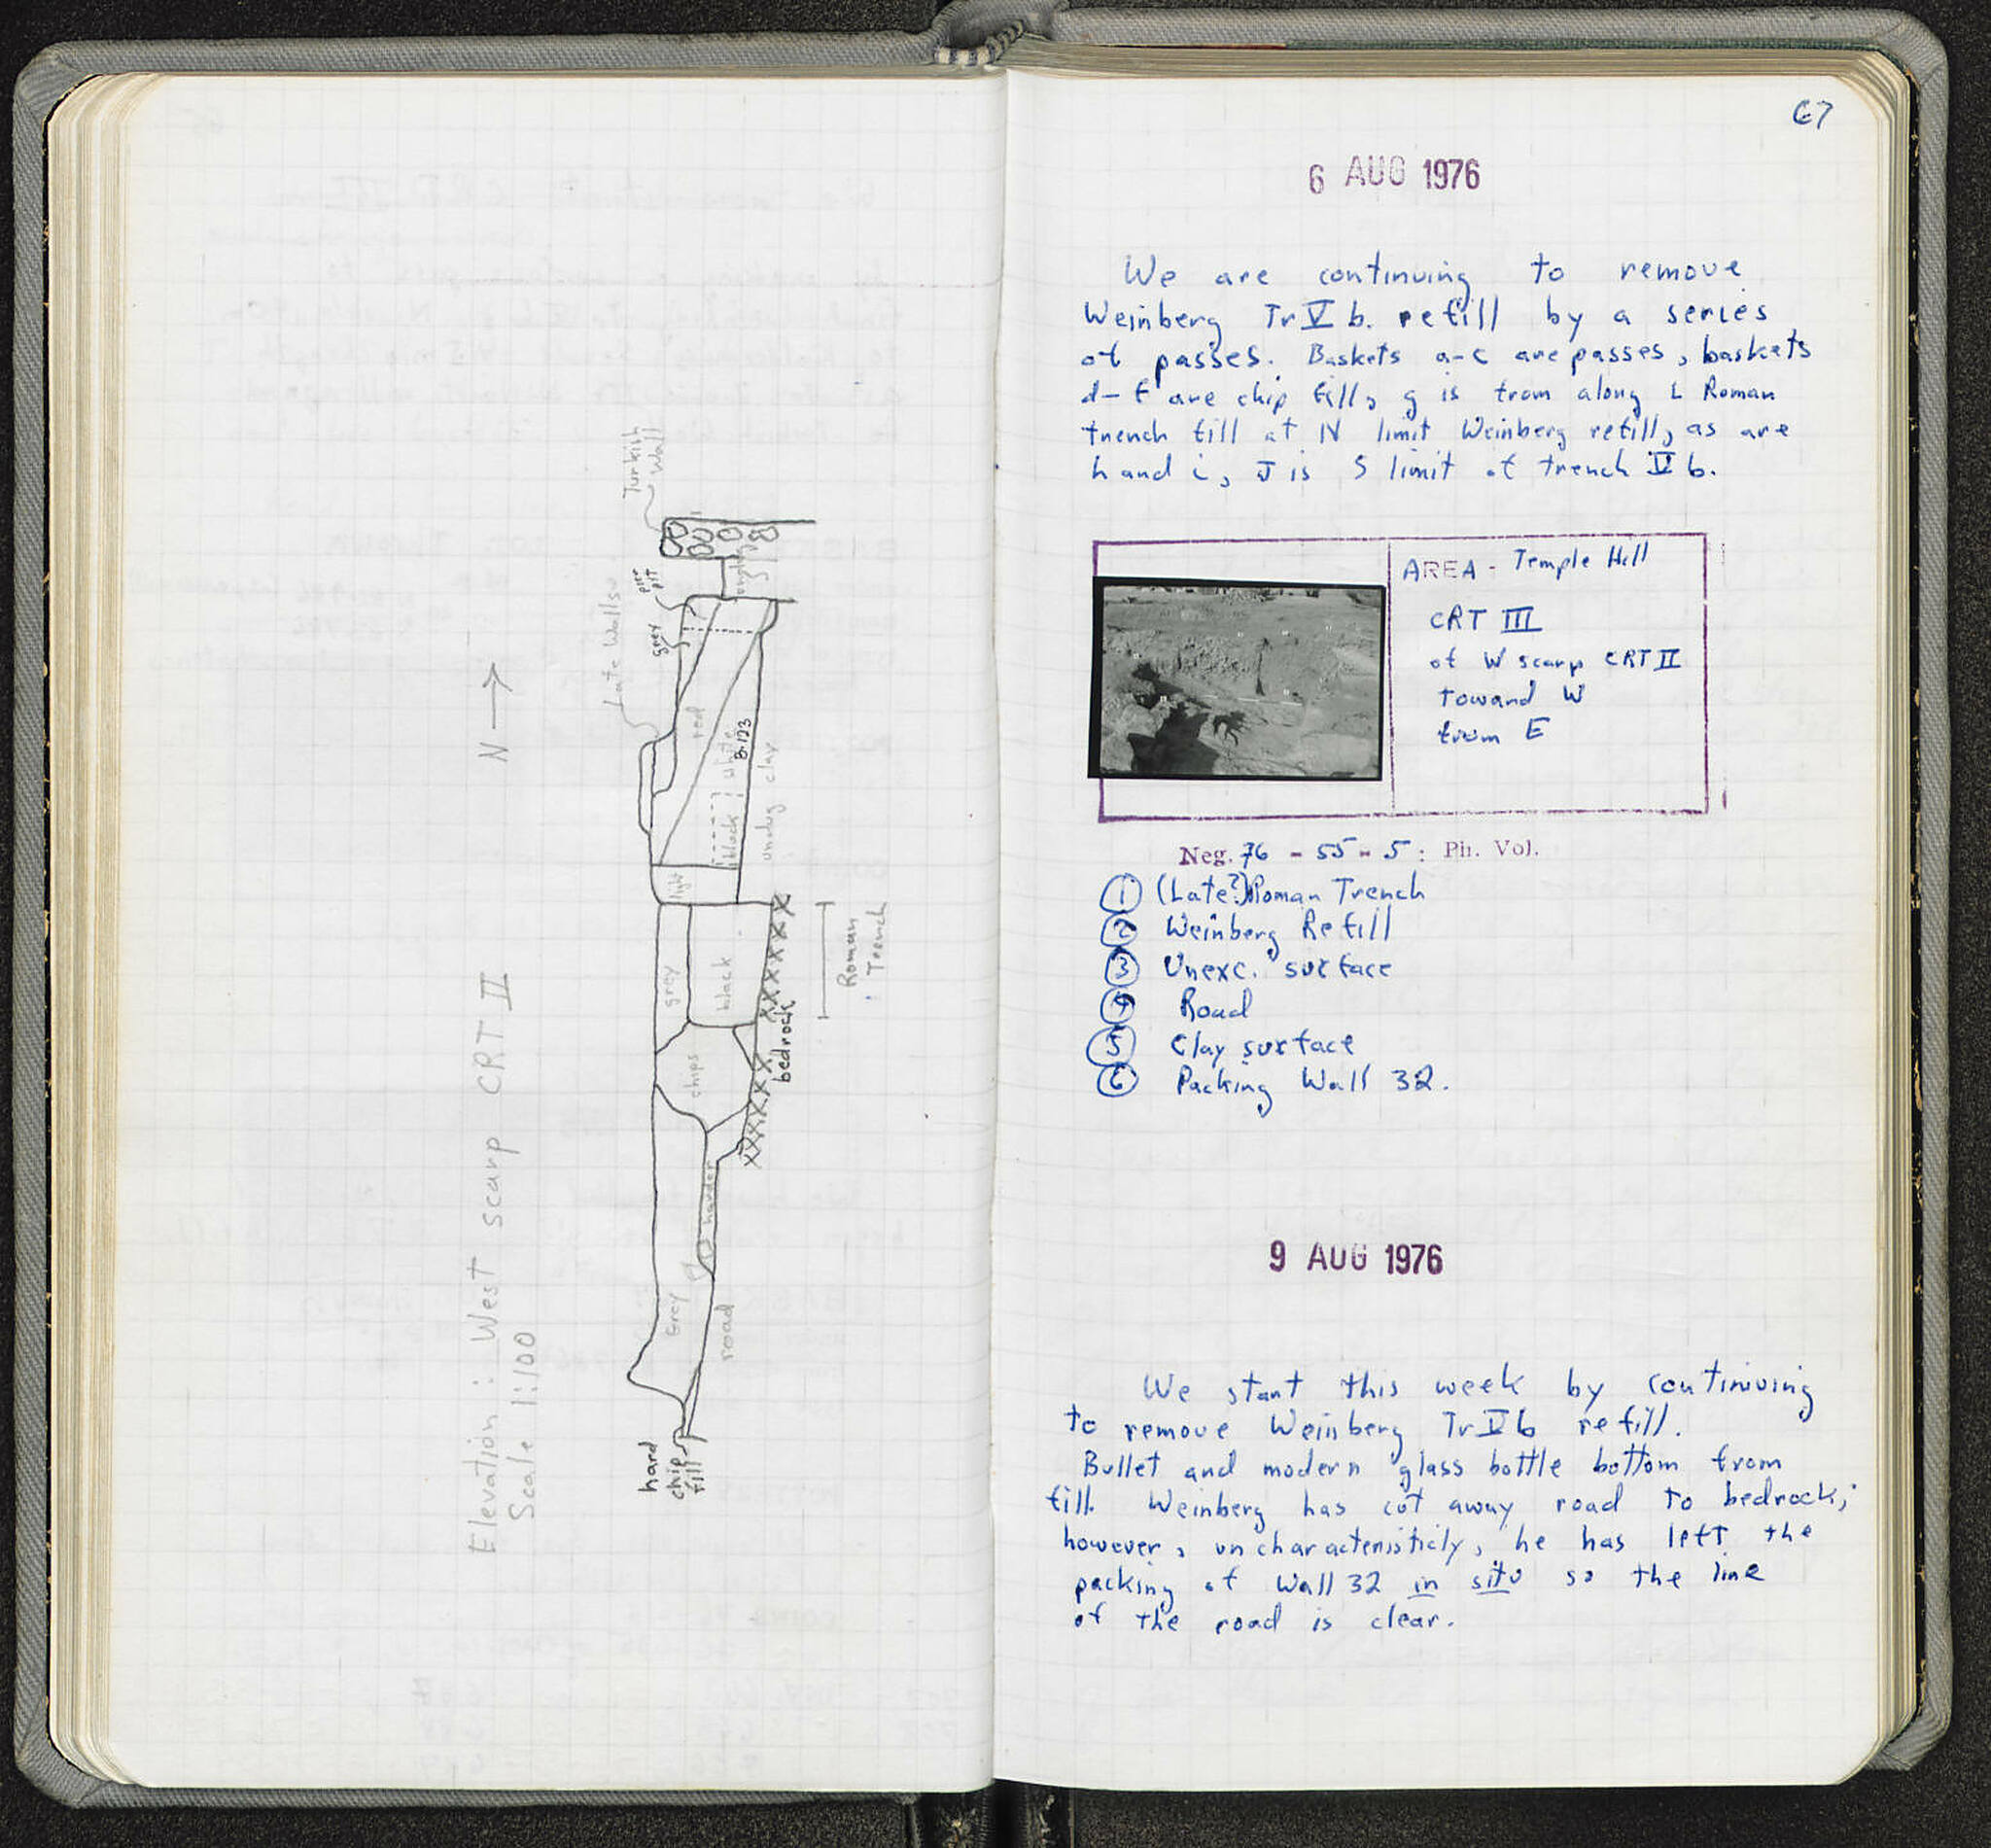 Elevation : West scarp CRT II
Scale 1:100
N
Turkish
Wall
Late Walls
pier
pit
grey
red
white
B-123
black
undug clay
light
grey
black
Roman
Trench
bedrock
chips
harder
Grey
road
hard
chip
fill
67
6 AUG 1976
We are continuing to remove
Weinberg Tr V b. refill by a series
of passes. Baskets a-c are passes, baskets
d-f are chip fill, g is from along L Roman
trench fill at N limit Weinberg refill, as are
h and i, J is S limit of trench V b.
AREA - Temple Hill
CRT III
of W scarp CRT II
toward W
from E
Neg. 76 - 55 - 5 : Ph. Vol.
① (Late?) Roman Trench
② Weinberg Refill
③ Unexc. surface
④ Road
⑤ Clay surface
⑥ Packing Wall 32.
9 AUG 1976
We start this week by continuing
to remove Weinberg Tr V b refill.
Bullet and modern glass bottle bottom from
fill. Weinberg has cut away road to bedrock;
however, uncharacteristicly, he has left the
packing of Wall 32 in situ so the line
of the road is clear.